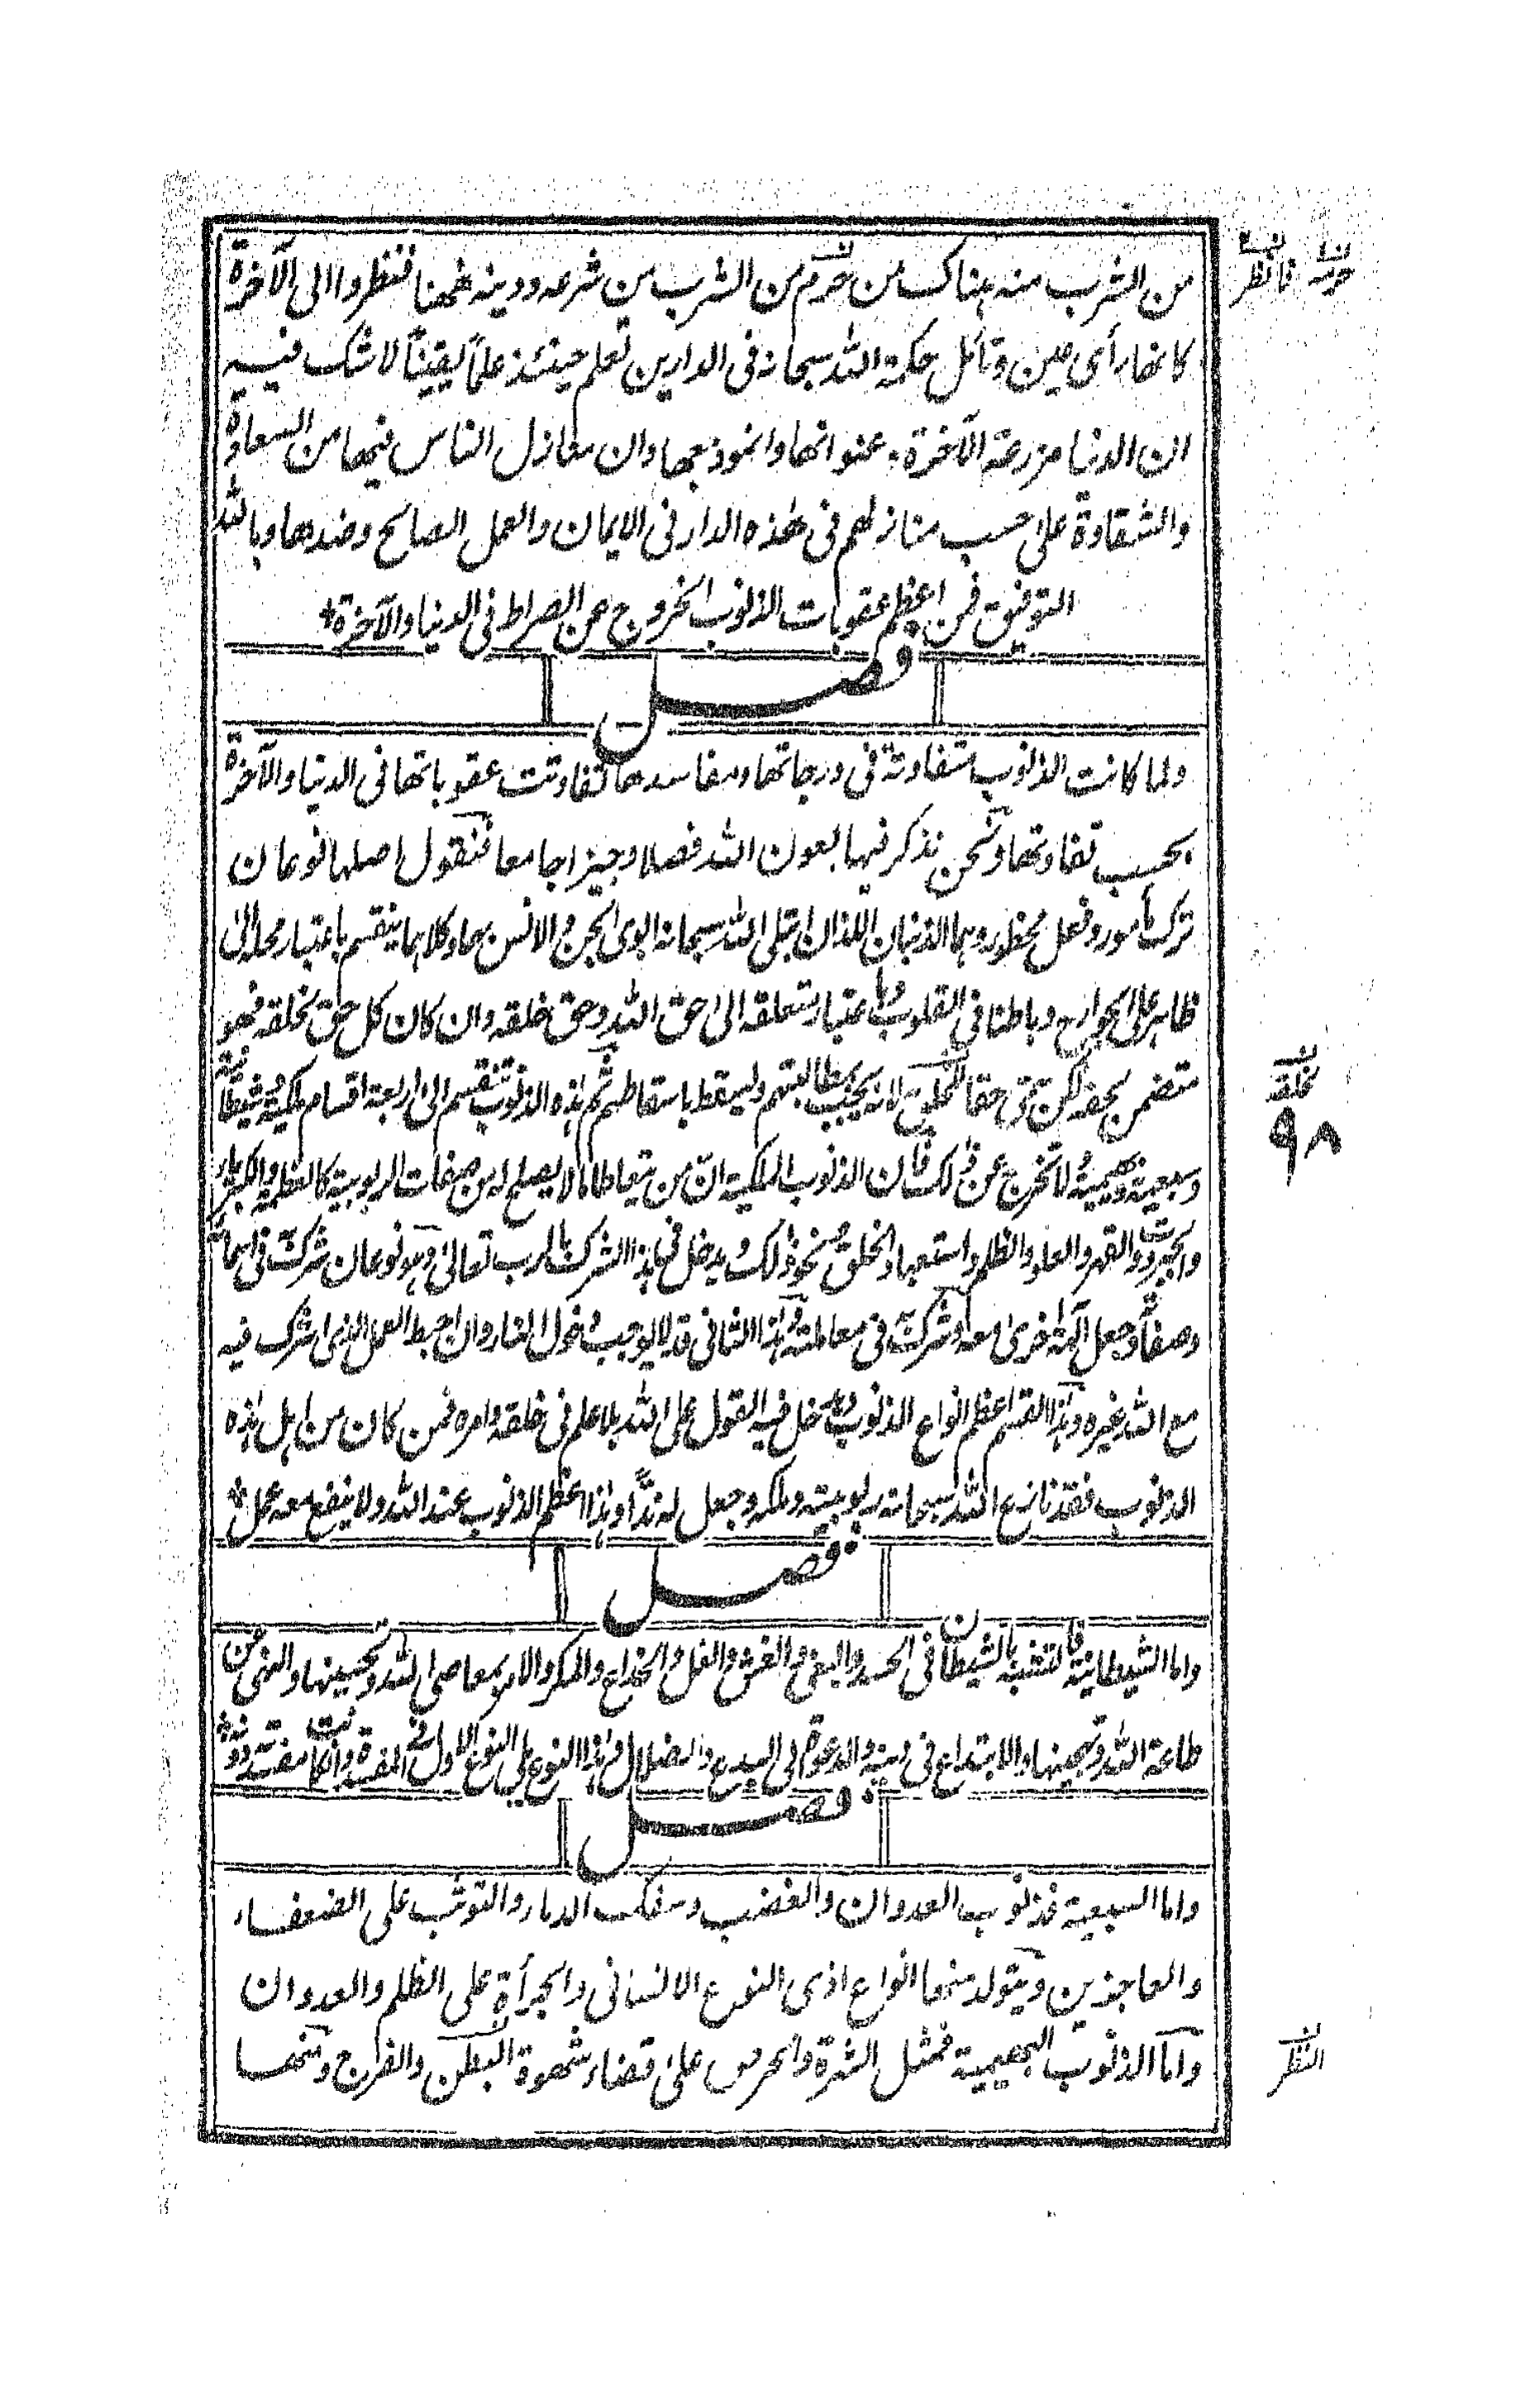 من الشرب منه هناك من حُرم من الشرب من شرعه ودينه ههنا فنظروا الى الآخرة
كانها رأى عين وتأمل حكمة الله سبحانه فى الدارين تعلم حينئذ علماً يقيناً لا شك فيه
ان الدنيا مزرعة الآخرة وعنوانها وانموذجها وان منازل الناس فيها من السعادة
والشقاوة على حسب منازلهم فى هذه الدار فى الايمان والعمل الصالح وضدها وبالله
التوفيق فمن اعظم عقوبات الذنوب الخروج عن الصراط فى الدنيا والآخرة
فصل
ولما كانت الذنوب متفاوتة فى درجاتها ومفاسدها تفاوتت عقوباتها فى الدنيا والآخرة
بحسب تفاوتها ونحن نذكر فيها بعون الله فصلا وجيزا جامعا فنقول اصلها نوعان
ترك مأمور وفعل محظور وهما الذنبان اللذان ابتلى الله سبحانه ابوى الجن والانس بهما وكلاهما ينقسم باعتبار محله الى
ظاهر على الجوارح وباطنا فى القلوب وباعتبار متعلقه الى حق الله وحق خلقه وان كان كل حق لخلقه فهو
متضمن بحقه لكن سمى حقا للخلق لانه يجب بمطالبتهم ويسقط باسقاطهم ثم هذه الذنوب تنقسم الى اربعة اقسام ملكية وشيطانية
وسبعية وبهيمية لا تخرج عن ذلك فان الذنوب الملكية ان من يتعاطا ما لا يصلح له من صفات الربوبية كالعظمة والكبرياء
والجبروت والقهر والعلو والظلم واستعباد الخلق ونحو ذلك ويدخل فى هذا الشرك بالرب تعالى وهو نوعان شرك فى اسمائه
وصفاته وجعل آلهة اخرى معه وشرك فى معاملته وهذا الثانى قد لا يوجب دخول النار وان احبط العمل الذى اشرك فيه
مع الله غيره وهذا القسم اعظم انواع الذنوب ويدخل فيه القول على الله بلا علم فى خلقه وامره فمن كان من اهل هذه
الذنوب فقد نازع الله سبحانه ربوبيته وملكه وجعل له نداً وهذا اعظم الذنوب عند الله ولا ينفع معه عمل
فصل
واما الشيطانية فالتشبه بالشيطان فى الحسد والبغى والغش والغل والخداع والمكر والامر بمعاصى الله وتحسينها والنهى عن
طاعة الله وتهجينها والابتداع فى دينه والدعوة الى البدع والضلال وهذا النوع يلى النوع الاول فى المفسدة وان كانت مفسدته دونه
فصل
واما السبعية فذنوب العدوان والغضب وسفك الدماء والتوثب على الضعفاء
والعاجزين ويتولد منها انواع اذى النوع الانسانى والجرأة على الظلم والعدوان
واما الذنوب البهيمية فمثل الشرة والحرص على قضاء شهوة البطن والفرج ومنها
حرمه
فانظر
لخلقه
٩٨
النظر